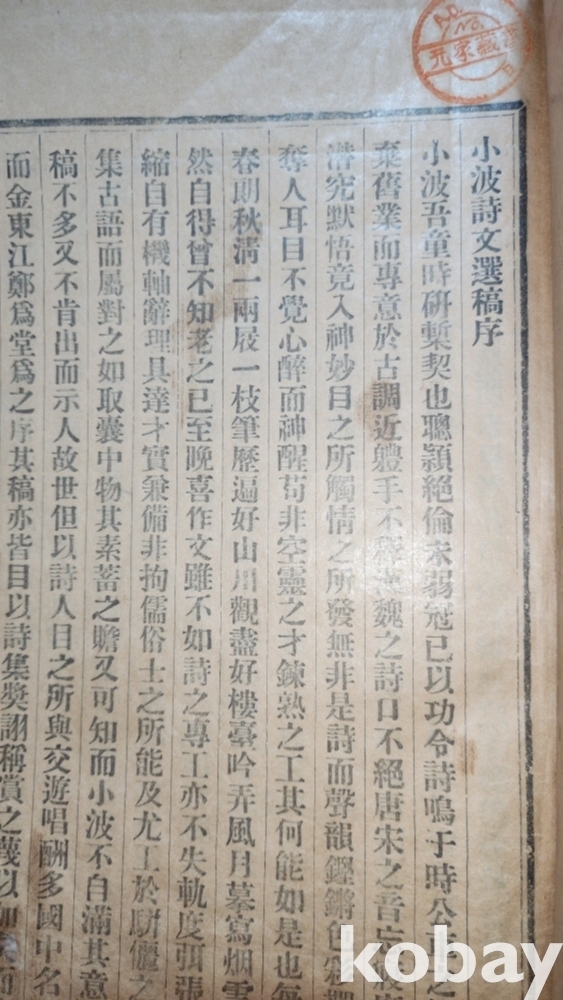 小波詩文選稿序
小波吾童時硏槧契也聰穎絕倫未弱冠已以功令詩鳴于時公車之
棄舊業而專意於古調近軆手不釋漢魏之詩口不絕唐宋之音忘
潛究默悟竟入神妙目之所觸情之所發無非是詩而聲韻鏗鏘色彩
奪人耳目不覺心醉而神醒苟非空靈之才鍊熟之工其何能如是也每
春朋秋淸一兩屐一枝筆歷遍好山川觀盡好樓臺吟弄風月摹寫烟雲
然自得曾不知老之已至晚喜作文雖不如詩之專工亦不失軌度弭張
縮自有機軸辭理具達才實兼備非拘儒俗士之所能及尤工於騈儷之
集古語而屬對之如取囊中物其素蓄之贍又可知而小波不自滿其意
稿不多又不肯出而示人故世但以詩人目之所與交遊唱酬多國中名
而金東江鄭爲堂爲之序其稿亦皆目以詩集獎詡稱賞之蔑以加
元家藏書
kobay